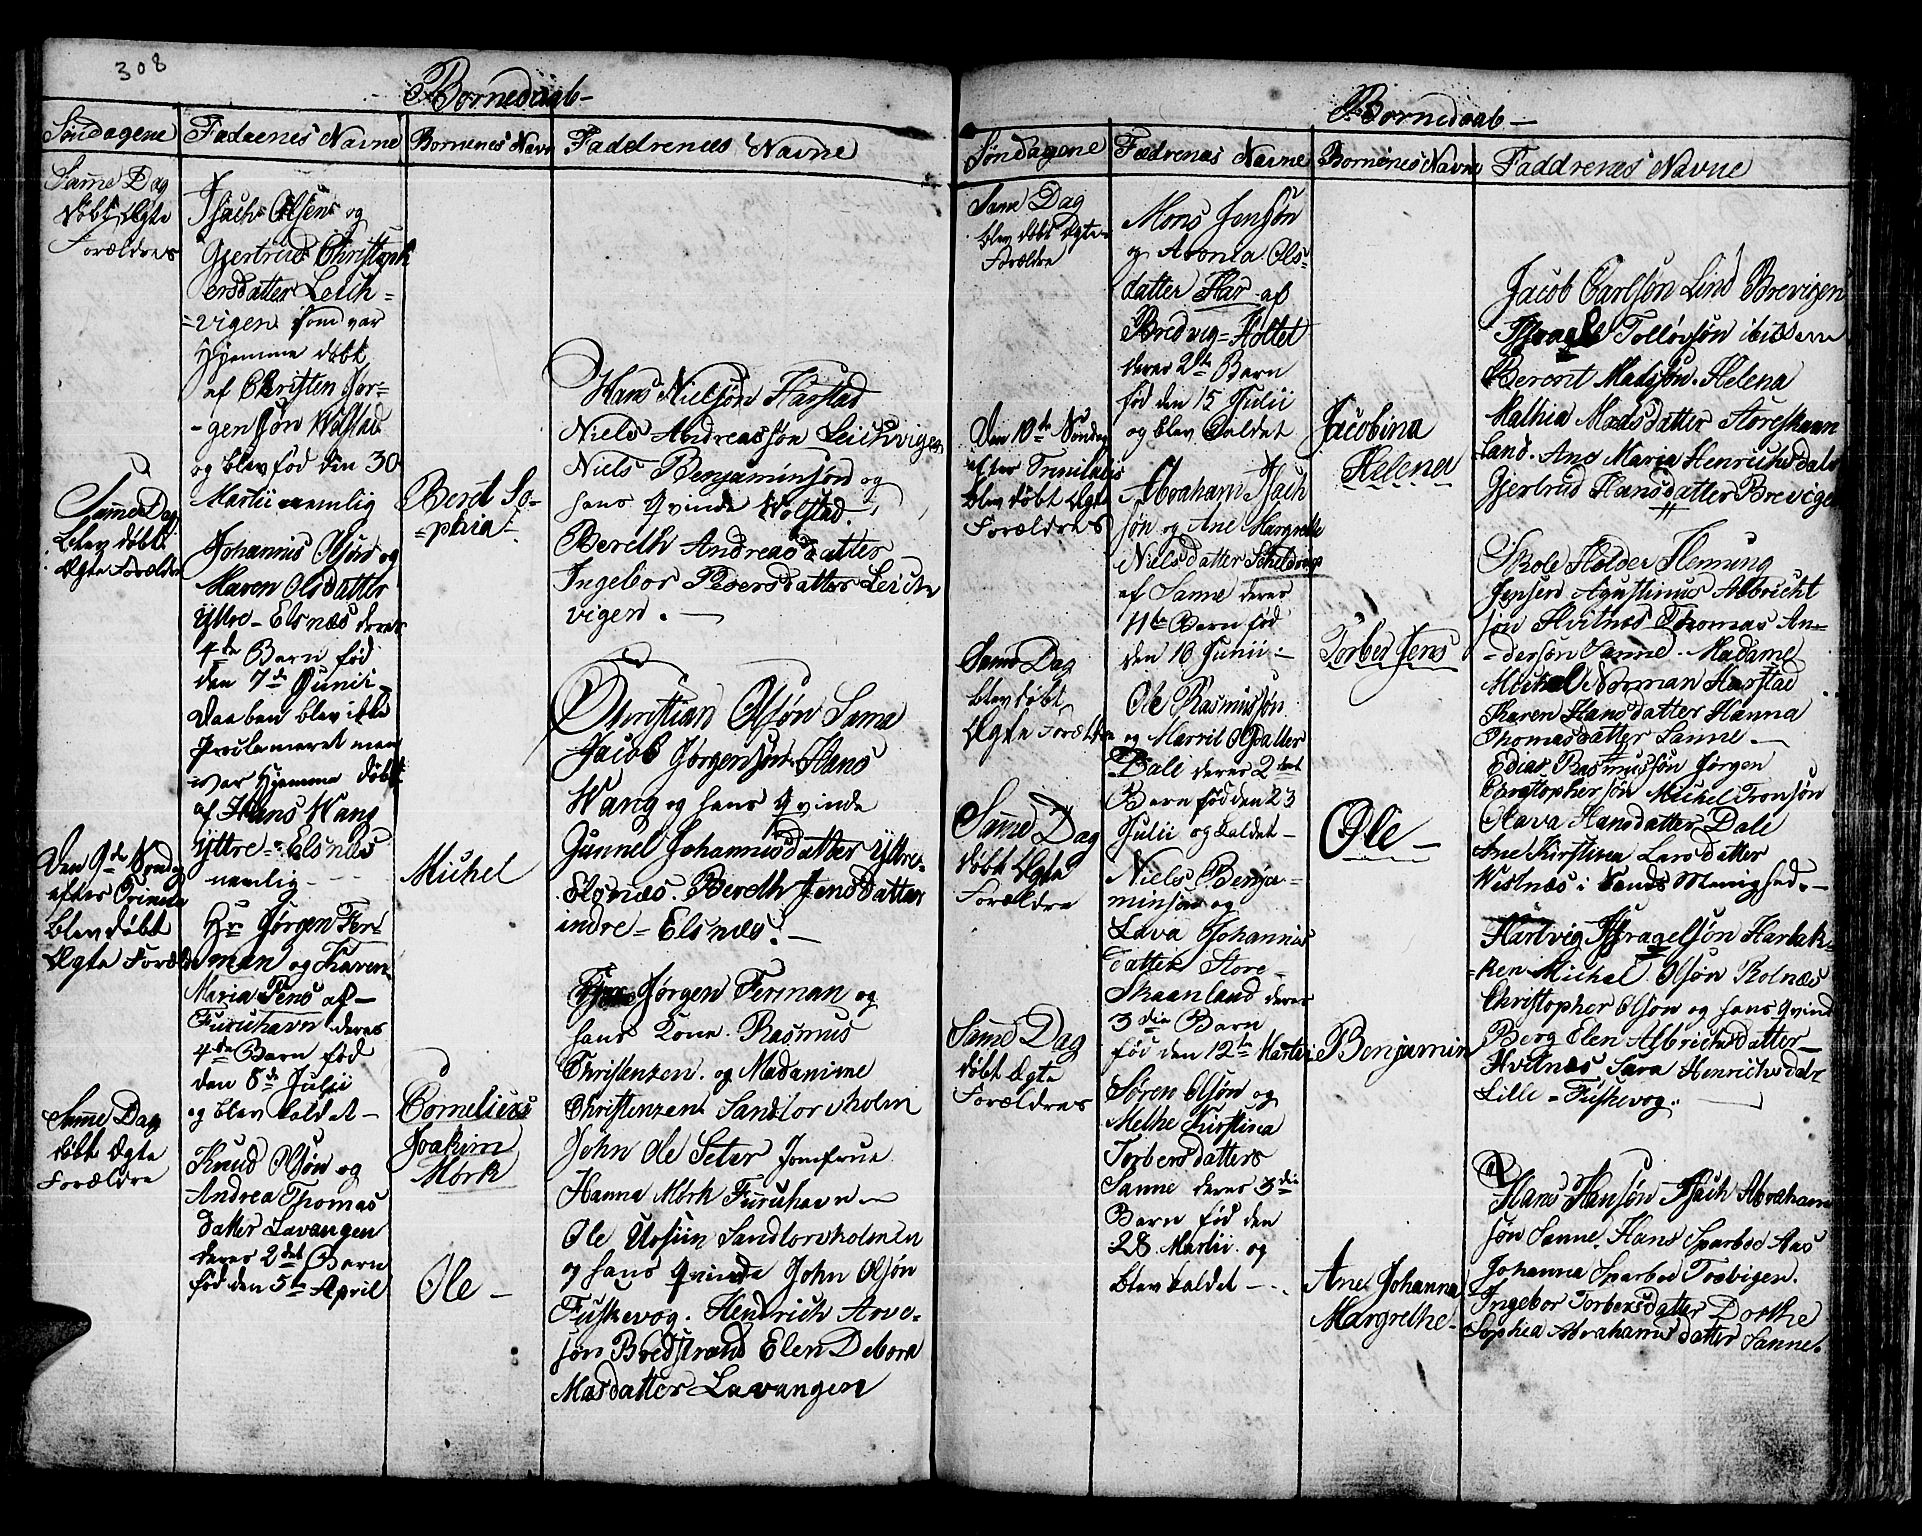 308
Børnedaab
Søndagene
Fædrenes Navne
Børnenes Navn
Faddrenes Navne
Same Dag
døbt Ægte
Forældres
Isach Olsens og
Gjertrud
ersdatter Leich=
=vigen som var
Hjemme døbt
af Christen Jør=
=gensøn Wolstad
og blev fød den 30
Martii nemlig
Beret So=
=phia
Hans Nielsøn Harstad
Niels Andreassøn Leichvigen
Niels Benjaminsøn og
hans Qvinde Wolstad.
Bereth Andreasdatter
Ingebor Pedersdatter Leich
vigen.
Same Dag
blev døbt
Ægte Forældre
Johannis Olsøn og
Maren Olsdatter
Yttre=Elsnæs deres
4de Barn fød
den 7de Junii
Daaben blev ikke
Proclameret men
war Hjemme døbt
af Hans Wang
Yttre=Elsnæs
nemlig
Michel
Christian Olsøn Sama
Jacob Jørgensøn. Hans
Wang og hans Qvinde
Gunnel Johannisdatter Yttre=
Elsnæs. Bereth Jensdatter
indre=Elsnæs.
Den 9de Sønda
efter Trinita
blev døbt
Ægte Foræld
Hr Jørgen Fer=
man og Karen
Maria Jens af
Furuhavn deres
4de Barn fød
den 8de Julii
og blev kaldet
Cornelius
Joakim
Mørk
Jørgen Ferman og
hans Kone. Rasmus
Christenzen. og Madamme
Christenzen Sandtorvholm
John Ole Seter Jomfrue
Hanna Mørk Furuhavn
Same Dag
døbt Ægte
Forældre
Knud Olsøn og
Andrea Thomas
datter Lavangen
deres 2det Barn
fød den 5te April
Ole
Ole Ursiin Sandtorvholmen
og hans Qvinde John Olsøn
Fuskevog. Hendrich Arve=
søn Bredstrand Elen Debora
Masdatter Lavangen
Børnedaab
Søndagene
Fædrenes Navne
Børnenes Navne
Faddrenes Navne
Same Dag
blev døbt Ægte
Forældre
Mons Jonsøn
og Aronia Ols=
datter Har af
Bredvig=Holtet
deres 2de Barn
fød den 15 Julii
og blev kaldet
Jacobina
Helena
Jacob Carlsøn Lind Brevigen
Tollevsøn ibidem
Berent Madssøn. Helena
Mathia Madsdatter Storeskaan
land. Ane Maria Henrichsdatr
Gjertrud Hansdatter Brevigen
Den 10de Søndag
efter Trinitatis
blev døbt Ægte
Forældres
Abraham Isach
søn og Ane Margrethe
Nielsdatter
af Sanne deres
11te Barn fød
den 10 Junii
Torber Jens
Skole Holder Flemming
Jensen Agustinus Albricht
søn Hvitnæs Thomas An=
=dersøn Sanne. Madame
Michel Norman Harstad
Karen Hansdatter Hanna
Thomasdatter Sanne
Same Dag
blev døbt
Ægte Forældre
Ole Rasmussøn
og Marrit Olsdatter
Dale deres 2det
Barn fød den 23
Julii og kaldet
Ole
Edias Rasmussøn Jørgen
Christophersøn Michel Tronsøn
Hansdatter Dale
Ane Kirstina Larsdatter
Westnæs i Sands Menighed.
Same Dag
døbt Ægte
Forældre
Niels Benja=
minsøn og
Lava Johannis
datter Store=
Skaanland deres
3die Barn
fød den 12te Martii
Benjamin
Hartvig Israelsøn
Michel Olsøn Rolnæs
Christopher Olsøn og hans Qvinde
Berg Elen Albrichsdatter
Hvitnæs Sara Henrichsdatr
Lille=Fuskevog.
Same Dag
døbt Ægte
Forældres
Søren Olsøn og
Methe Kirstina
Torbersdatters
Sanne deres 3die
Barn fød den
28 Martii og
blev kaldet
Ane Johanna
Margrethe
Hans Hansøn Isach Abraham
søn Sanne. Hans Sparboe Aas
Johanna Sparboe Trævigen.
Ingebor Torbersdatter Dorthe
Sophia Abrahamsdatter Sanne.